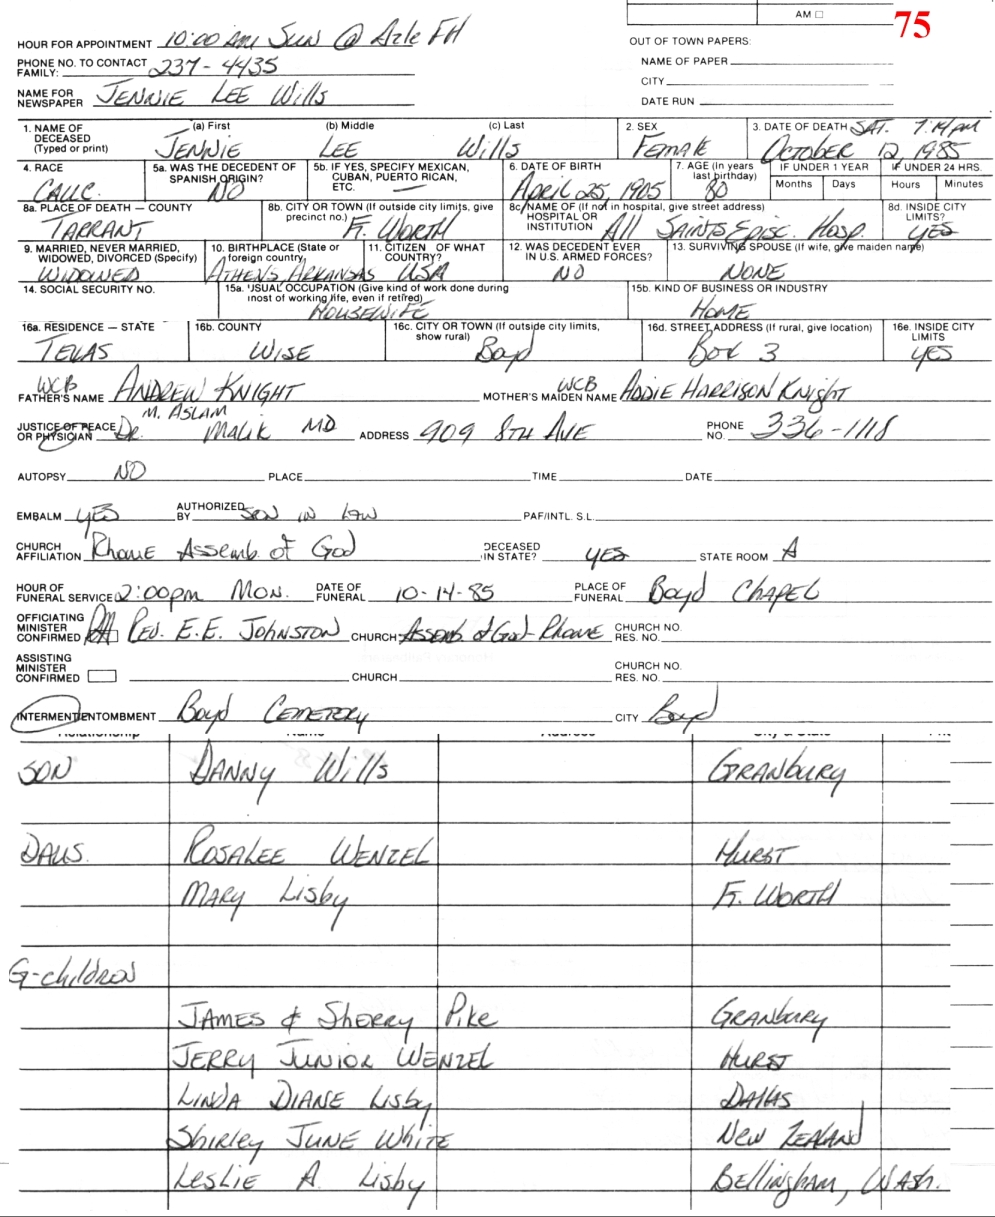 AM ☐ 75
HOUR FOR APPOINTMENT 10:00 AM Sun @ Azle FH
OUT OF TOWN PAPERS:
PHONE NO. TO CONTACT FAMILY: 237-4435
NAME OF PAPER
CITY
NAME FOR NEWSPAPER JENNIE LEE Wills
DATE RUN
1. NAME OF DECEASED (Typed or print) (a) First (b) Middle (c) Last 2. SEX 3. DATE OF DEATH SAT. 7:14 pm
JENNIE LEE Wills Female October 12 1985
4. RACE 5a. WAS THE DECEDENT OF SPANISH ORIGIN? 5b. IF YES, SPECIFY MEXICAN, CUBAN, PUERTO RICAN, ETC. 6. DATE OF BIRTH 7. AGE (In years last birthday) IF UNDER 1 YEAR IF UNDER 24 HRS.
Months Days Hours Minutes
CAUC. NO — April 25, 1905 80
8a. PLACE OF DEATH — COUNTY 8b. CITY OR TOWN (If outside city limits, give precinct no.) 8c. NAME OF (If not in hospital, give street address) HOSPITAL OR INSTITUTION 8d. INSIDE CITY LIMITS?
TARRANT Ft. WORTH All SAINTS EPISC. HOSP. YES
9. MARRIED, NEVER MARRIED, WIDOWED, DIVORCED (Specify) 10. BIRTHPLACE (State or foreign country) 11. CITIZEN OF WHAT COUNTRY? 12. WAS DECEDENT EVER IN U.S. ARMED FORCES? 13. SURVIVING SPOUSE (If wife, give maiden name)
WIDOWED ATHENS, ARKANSAS USA NO NONE
14. SOCIAL SECURITY NO. 15a. USUAL OCCUPATION (Give kind of work done during most of working life, even if retired) 15b. KIND OF BUSINESS OR INDUSTRY
HOUSEWIFE HOME
16a. RESIDENCE — STATE 16b. COUNTY 16c. CITY OR TOWN (If outside city limits, show rural) 16d. STREET ADDRESS (If rural, give location) 16e. INSIDE CITY LIMITS
TEXAS WISE Boyd BOX 3 yES
WCB WCB
FATHER'S NAME ANDREW KNIGHT MOTHER'S MAIDEN NAME ADDIE HARRISON KNIGHT
M. ASLAM
JUSTICE OF PEACE OR PHYSICIAN Dr. MALIK MD ADDRESS 909 8TH AVE PHONE NO. 336-1118
AUTOPSY NO PLACE TIME DATE
EMBALM YES AUTHORIZED BY SON IN LAW PAF/INTL. S.L.
CHURCH AFFILIATION Rhome Assemb. of God DECEASED IN STATE? YES STATE ROOM A
HOUR OF FUNERAL SERVICE 2:00pm MON. DATE OF FUNERAL 10-14-85 PLACE OF FUNERAL Boyd CHAPEL
OFFICIATING MINISTER CONFIRMED REV. E.E. JOHNSTON CHURCH Assemb of God-Rhome CHURCH NO. RES. NO.
ASSISTING MINISTER CONFIRMED CHURCH CHURCH NO. RES. NO.
INTERMENT/ENTOMBMENT Boyd CEMETERY CITY Boyd
Relationship Name Address City & State
SON DANNY Wills GRANBURY
DAUS. ROSALEE WENZEL HURST
MARY Lisby Ft. WORTH
G-children
JAMES & SHERRY Pike GRANBURY
JERRY JUNIOR WENZEL HURST
LINDA DIANE Lisby DALLAS
Shirley JUNE WHITE NEW ZEALAND
LESLIE A. Lisby Bellingham, WAsh.